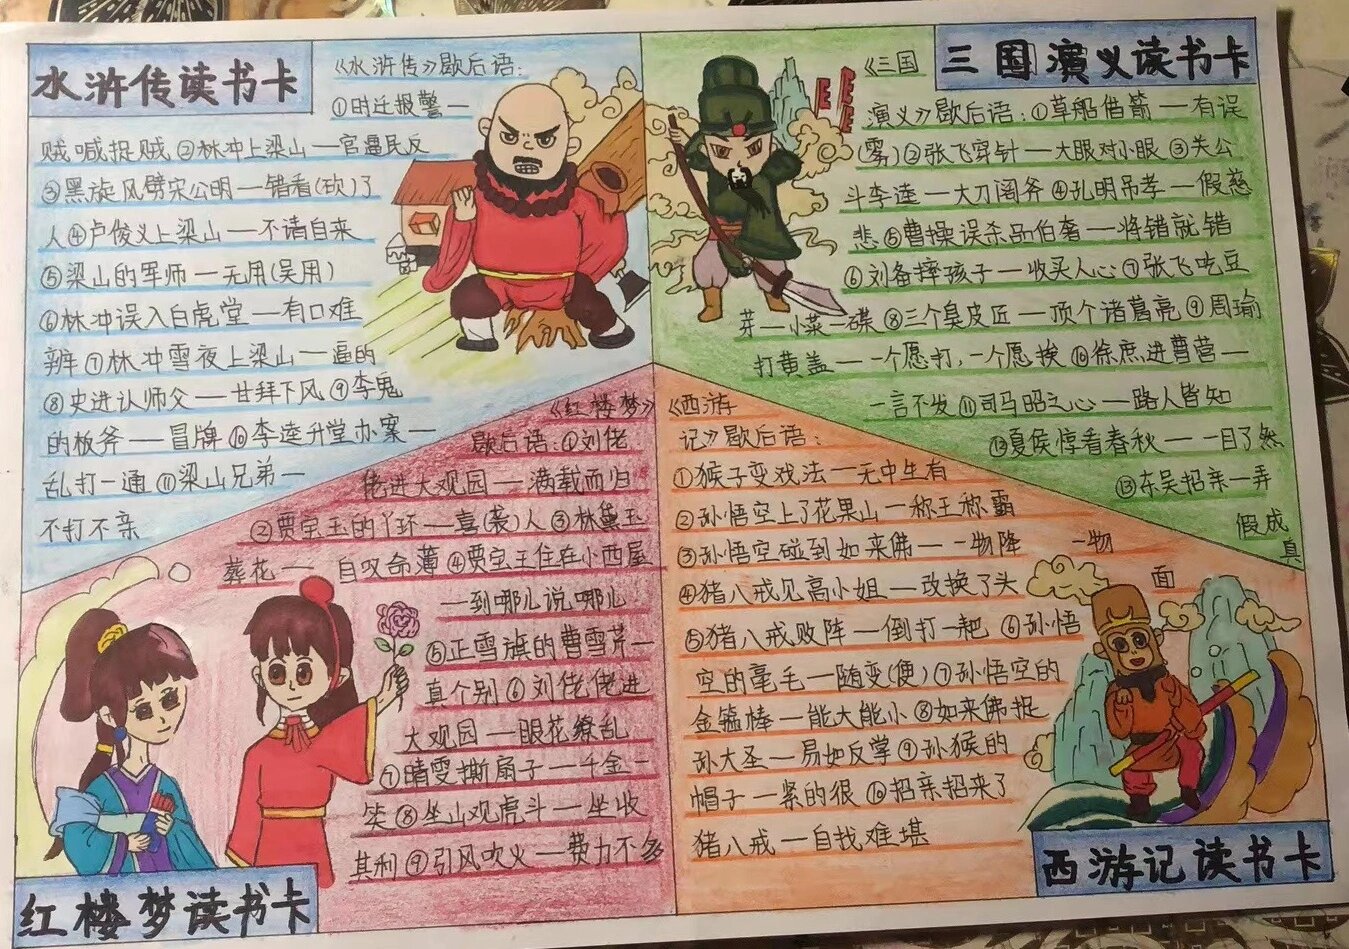 水浒传读书卡
《水浒传》歇后语：
①时迁报警—
贼喊捉贼②林冲上梁山—官逼民反
③黑旋风劈宋公明—错看(砍)了
人④卢俊义上梁山—不请自来
⑤梁山的军师—无用(吴用)
⑥林冲误入白虎堂—有口难
辨⑦林冲雪夜上梁山—逼的
⑧史进认师父—甘拜下风⑨李鬼
的板斧—冒牌⑩李逵升堂办案—
乱打一通⑪梁山兄弟—
不打不亲
三国演义读书卡
《三国
演义》歇后语：①草船借箭—有误
(雾)②张飞穿针—大眼对小眼③关公
斗李逵—大刀阔斧④孔明吊孝—假慈
悲⑤曹操误杀吕伯奢—将错就错
⑥刘备摔孩子—收买人心⑦张飞吃豆
芽—小菜一碟⑧三个臭皮匠—顶个诸葛亮⑨周瑜
打黄盖—一个愿打，一个愿挨⑩徐庶进曹营—
一言不发⑪司马昭之心—路人皆知
⑫夏侯惇看春秋—一目了然
⑬东吴招亲—弄
假成
真
《红楼梦》
歇后语：①刘佬
佬进大观园—满载而归
②贾宝玉的丫环—喜(袭)人③林黛玉
葬花—自叹命薄④贾宝玉住在小西屋
—到哪儿说哪儿
⑤正雪旗的曹雪芹—
真个别⑥刘佬佬进
大观园—眼花缭乱
⑦晴雯撕扇子—千金一
笑⑧坐山观虎斗—坐收
其利⑨引风吹火—费力不多
红楼梦读书卡
《西游
记》歇后语：
①猴子变戏法—无中生有
②孙悟空上了花果山—称王称霸
③孙悟空碰到如来佛—一物降一物
④猪八戒见高小姐—改换了头面
⑤猪八戒败阵—倒打一耙⑥孙悟
空的毫毛—随变(便)⑦孙悟空的
金箍棒—能大能小⑧如来佛捉
孙大圣—易如反掌⑨孙猴的
帽子—紧的很⑩招亲招来了
猪八戒—自找难堪
西游记读书卡